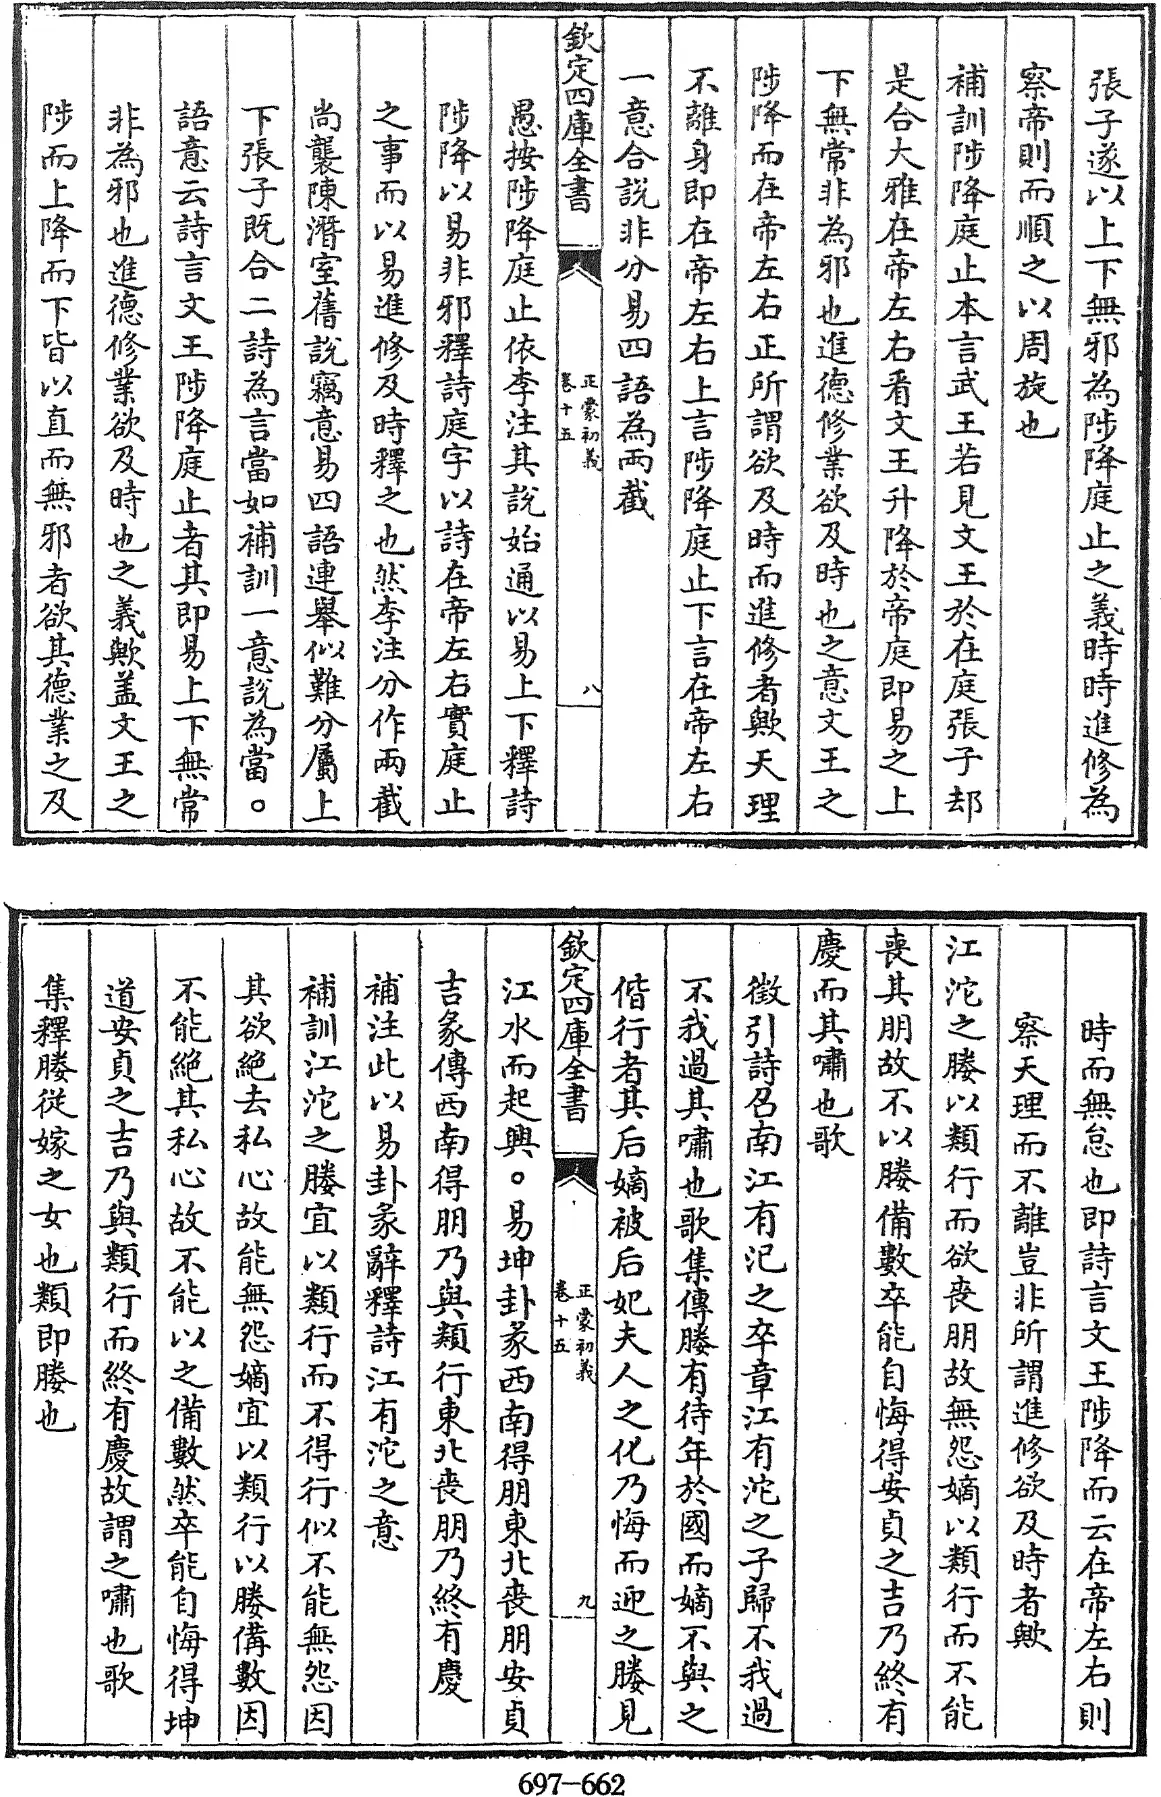 張子遂以上下無邪為陟降庭止之義時時進修為
察帝則而順之以周旋也
補訓陟降庭止本言武王若見文王於在庭張子却
是合大雅在帝左右看文王升降於帝庭即易之上
下無常非為邪也進德修業欲及時也之意文王之
陟降而在帝左右正所謂欲及時而進修者歟天理
不離身即在帝左右上言陟降庭止下言在帝左右
一意合說非分易四語為兩截
欽定四庫全書
正蒙初義
卷十五
八
愚按陟降庭止依李注其說始通以易上下釋詩
陟降以易非邪釋詩庭字以詩在帝左右實庭止
之事而以易進修及時釋之也然李注分作兩截
尚襲陳潛室舊說竊意易四語連舉似難分屬上
下張子既合二詩為言當如補訓一意說為當。
語意云詩言文王陟降庭止者其即易上下無常
非為邪也進德修業欲及時也之義歟盖文王之
陟而上降而下皆以直而無邪者欲其德業之及
時而無怠也即詩言文王陟降而云在帝左右則
察天理而不離豈非所謂進修欲及時者歟
江沱之媵以類行而欲喪朋故無怨嫡以類行而不能
喪其朋故不以媵備數卒能自悔得安貞之吉乃終有
慶而其嘯也歌
徵引詩召南江有汜之卒章江有沱之子歸不我過
不我過其嘯也歌集傳媵有待年於國而嫡不與之
偕行者其后嫡被后妃夫人之化乃悔而迎之媵見
欽定四庫全書
正蒙初義
卷十五
九
江水而起興。易坤卦彖西南得朋東北喪朋安貞
吉彖傳西南得朋乃與類行東北喪朋乃終有慶
補注此以易卦彖辭釋詩江有沱之意
補訓江沱之媵宜以類行而不得行似不能無怨因
其欲絶去私心故能無怨嫡宜以類行以媵備數因
不能絶其私心故不能以之備數然卒能自悔得坤
道安貞之吉乃與類行而終有慶故謂之嘯也歌
集釋媵從嫁之女也類即媵也
697-662